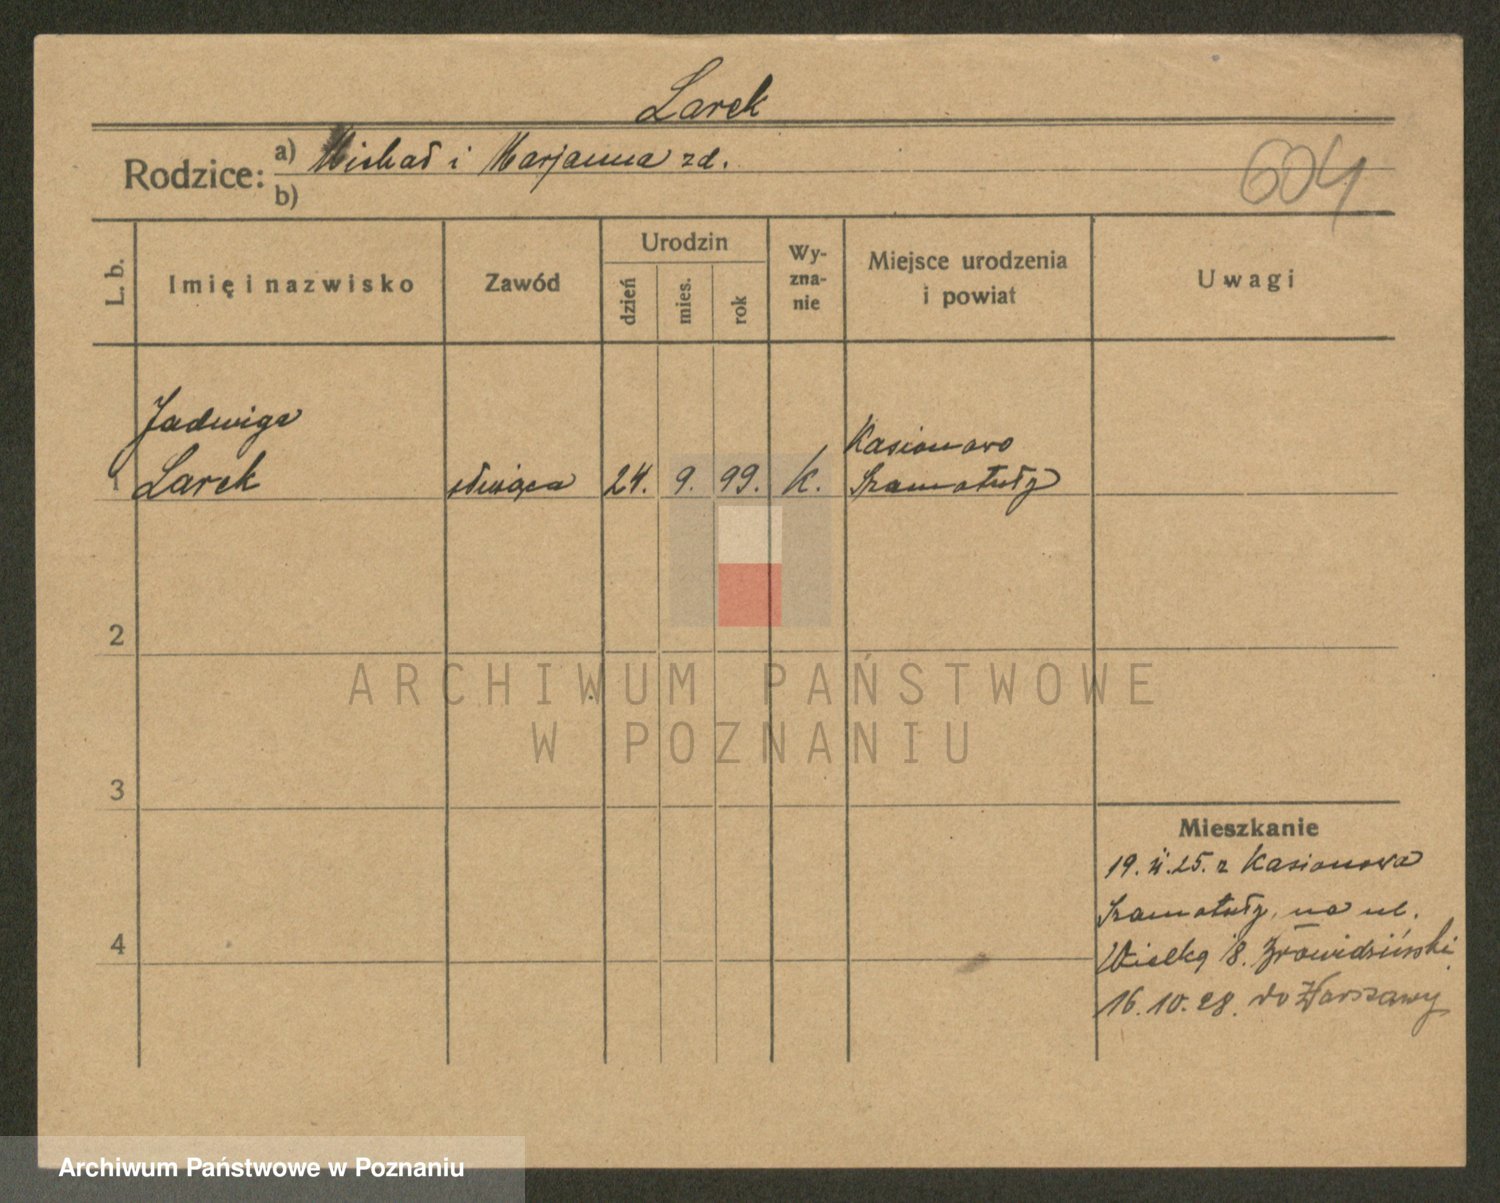 Larek
Rodzice: a) Michał i Marjanna zd.
b)
604
L. b.
Imię i nazwisko
Zawód
Urodzin
dzień
mies.
rok
Wy-
zna-
nie
Miejsce urodzenia
i powiat
Uwagi
Jadwiga
1 Larek służąca 24. 9. 99. k. Kasionowo
Szamotuły
2
3
4
ARCHIWUM PAŃSTWOWE
W POZNANIU
Mieszkanie
19. 25. z Kasionowa
Szamotuły, na ul.
Wielką 18.
16. 10. 28. do Warszawy
Archiwum Państwowe w Poznaniu